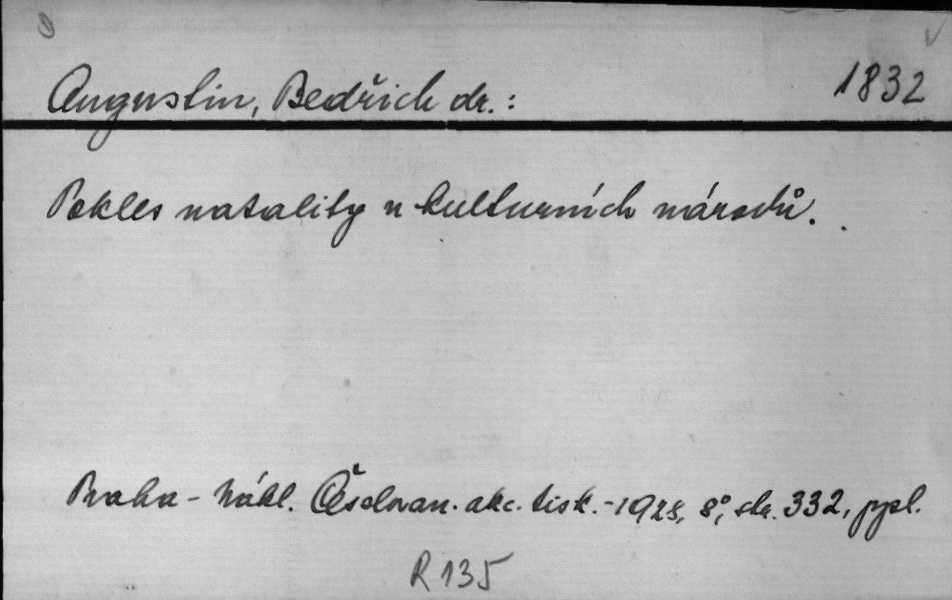 Augustin, Bedřich dr.: 1832
Pokles natality u kulturních národů.
Praha - Nákl. Českoslovan. akc. tisk. - 1928, 8°, str. 332,
R 135